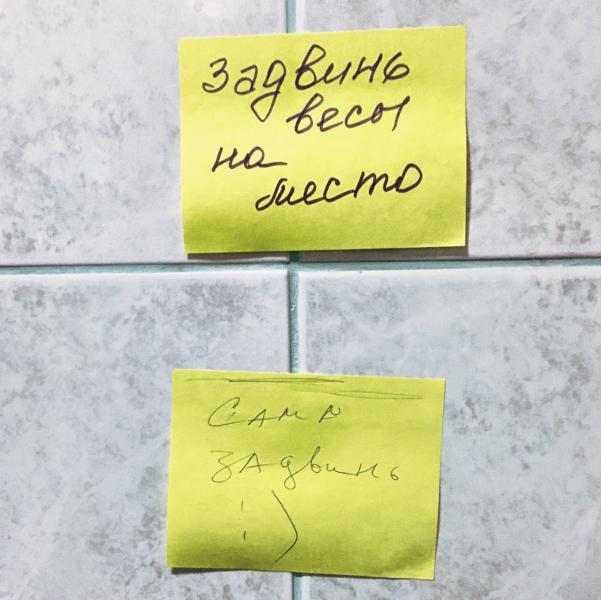 Задвинь
весы
на
место
Сама
задвинь
:)